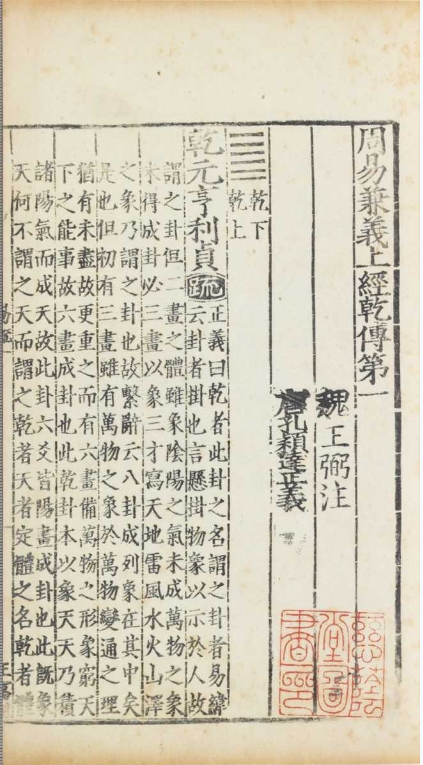 周易兼義上經乾傳第一
魏王弼注
唐孔穎達正義
䷀
乾下
乾上
乾元亨利貞
疏
正義曰乾者此卦之名謂之卦者易緯
云卦者掛也言懸掛物象以示於人故
謂之卦但二畫之體雖象陰陽之氣未成萬物之象
未得成卦必三畫以象三才寫天地雷風水火山澤
之象乃謂之卦也故繫辭云八卦成列象在其中矣
是也但初有三畫雖有萬物之象於萬物變通之理
猶有未盡故更重之而有六畫備萬物之形象窮天
下之能事故六畫成卦也此乾卦本以象天天乃積
諸陽氣而成天故此卦六爻皆陽畫成卦也此既象
天何不謂之天而謂之乾者天者定體之名乾者體